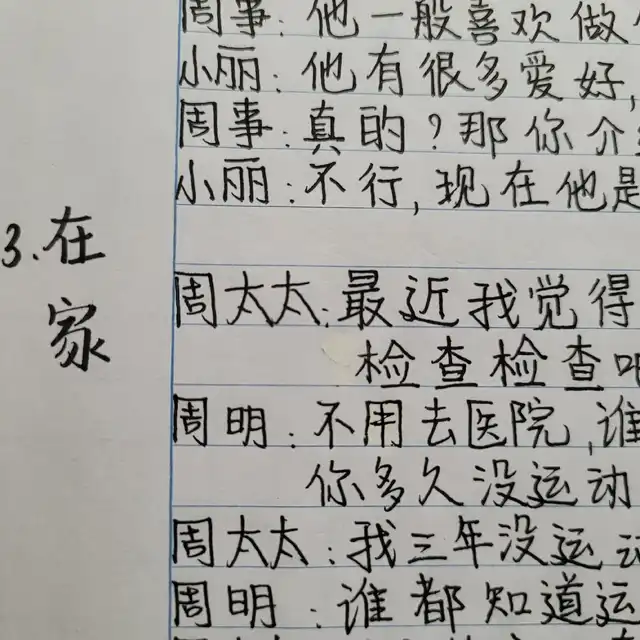 周事：他一般喜欢做
小丽：他有很多爱好，
周事：真的？那你介
小丽：不行，现在他是
3.在
家
周太太：最近我觉得
检查检查吧
周明：不用去医院，谁
你多久没运动
周太太：我三年没运动
周明：谁都知道运